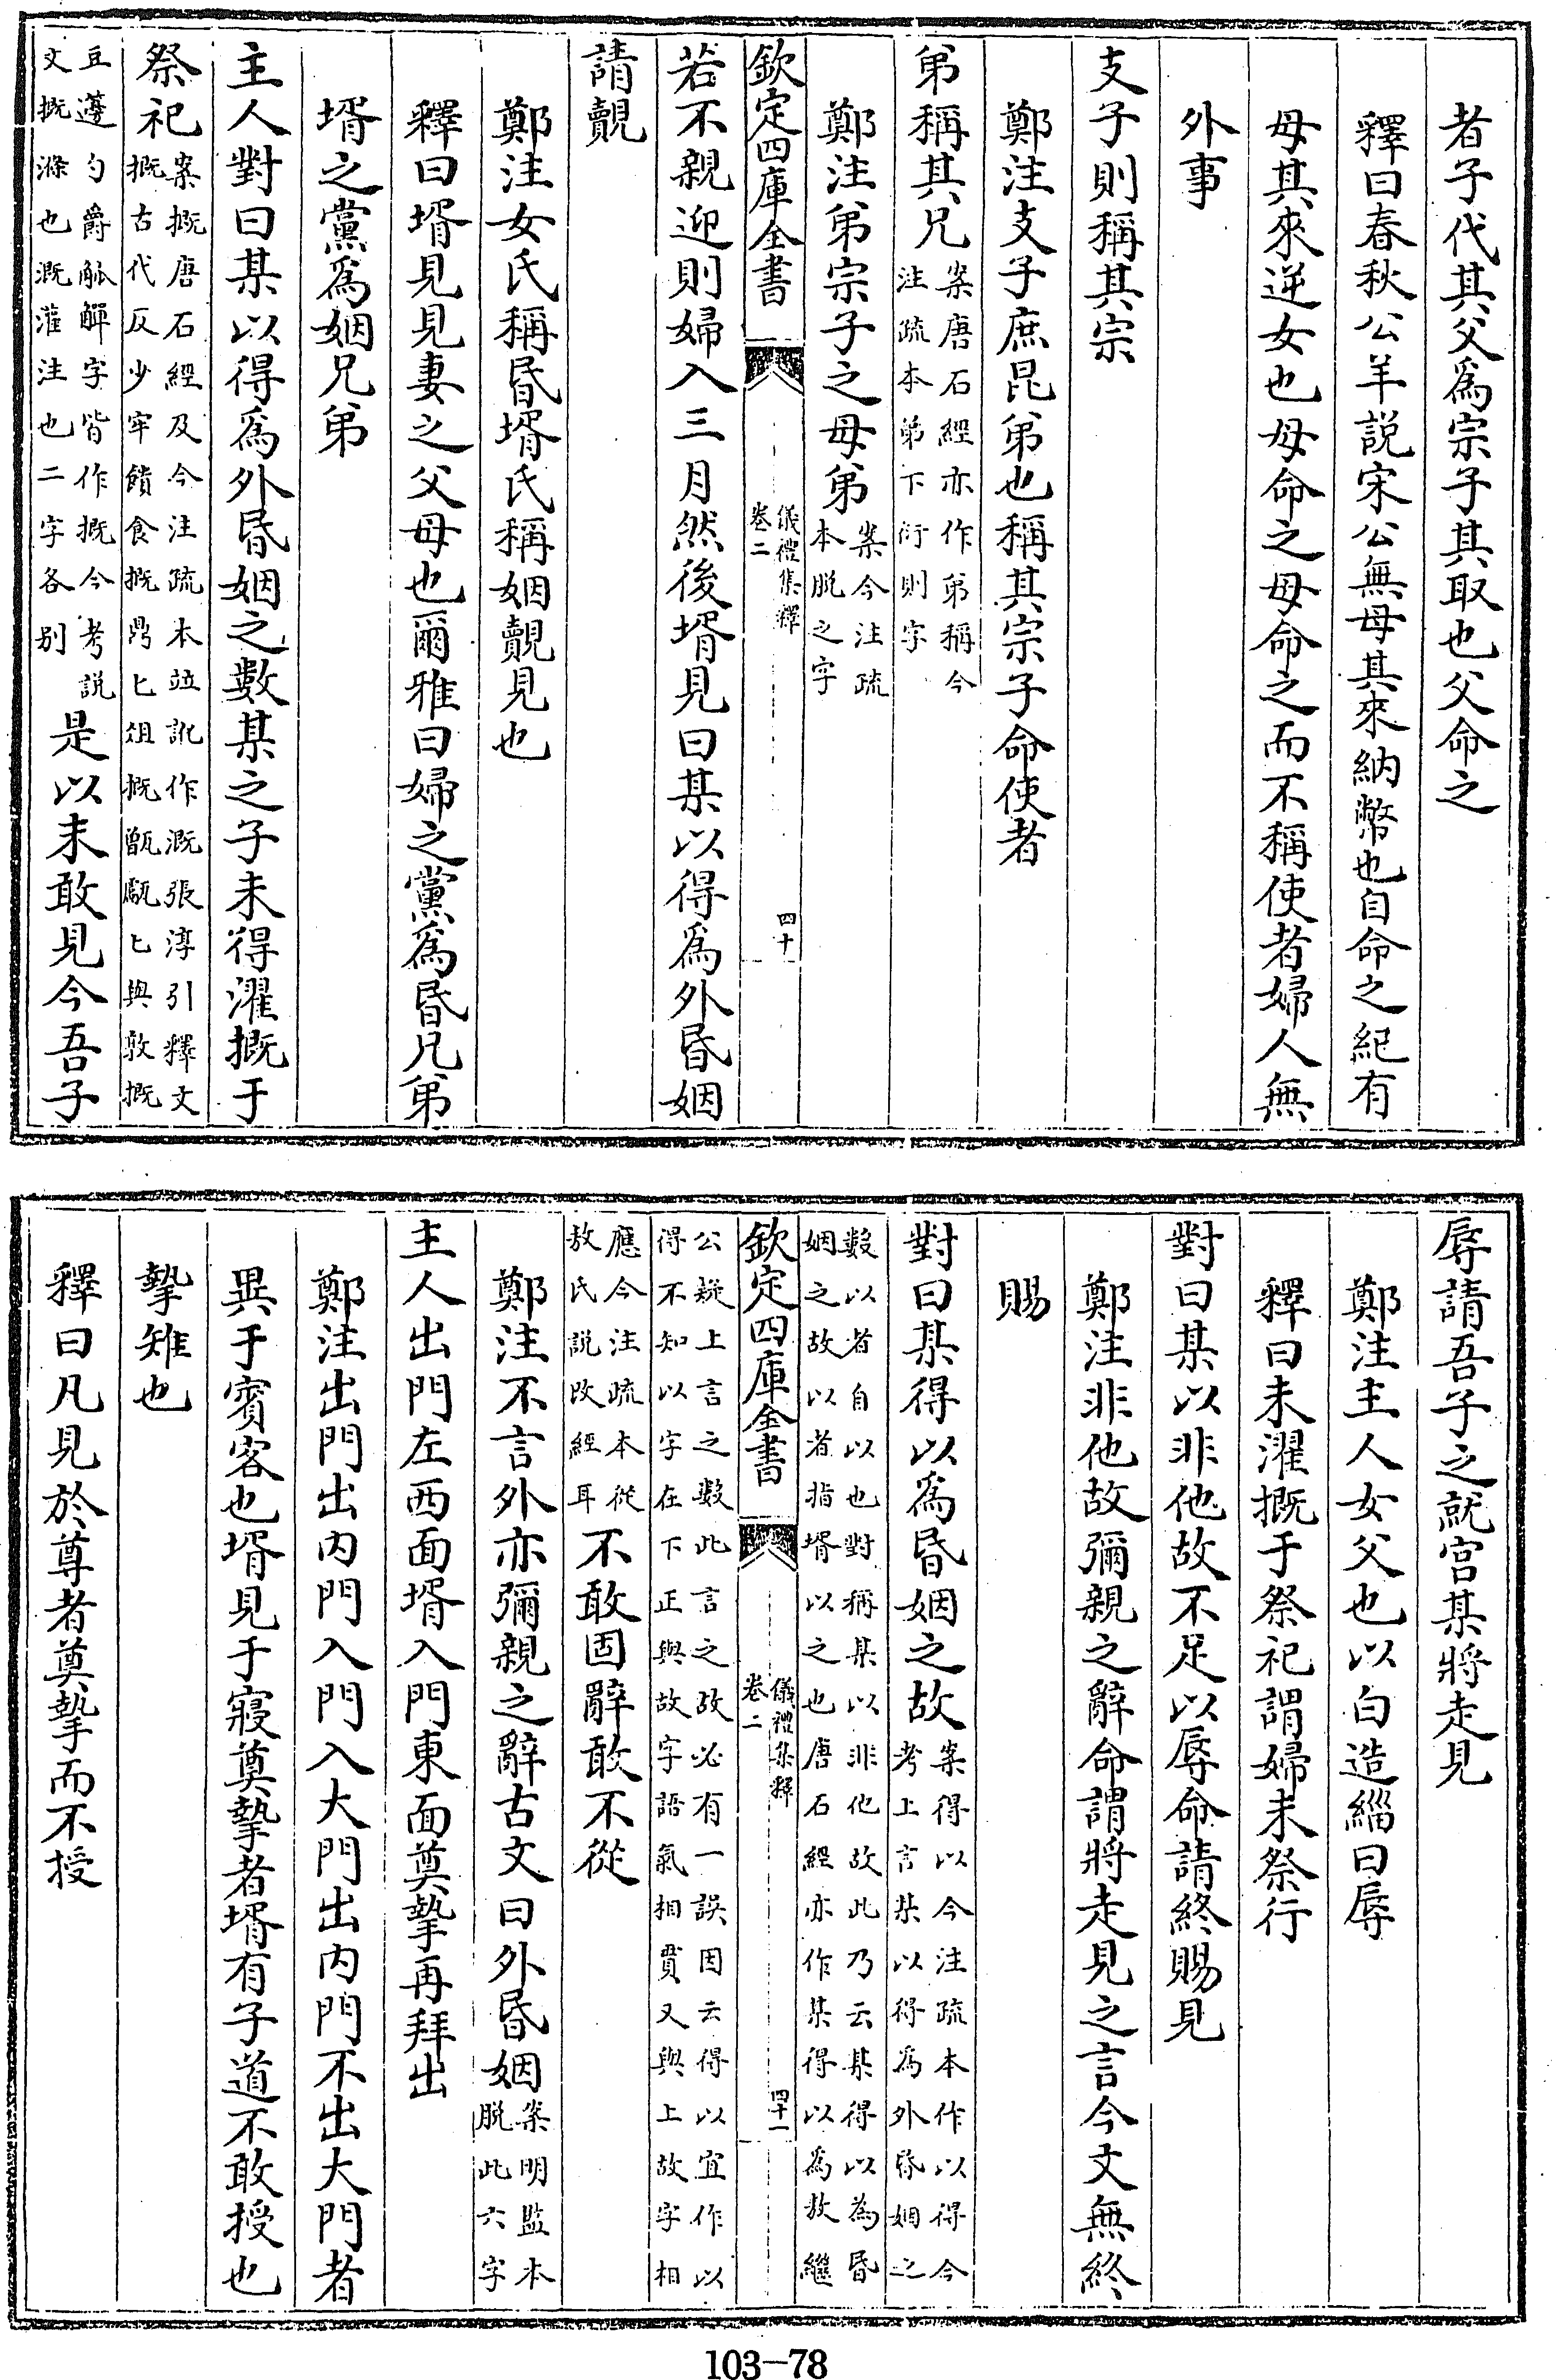 者子代其父爲宗子其取也父命之
釋曰春秋公羊說宋公無母其來納幣也自命之紀有
母其來逆女也母命之母命之而不稱使者婦人無
外事
支子則稱其宗
鄭注支子庶昆弟也稱其宗子命使者
弟稱其兄案唐石經亦作弟稱今
注疏本弟下衍則字
鄭注弟宗子之母弟案今注疏
本脫之字
欽定四庫全書
儀禮集釋
卷二
四十
若不親迎則婦入三月然後壻見曰某以得爲外昏姻
請覿
鄭注女氏稱昏壻氏稱姻覿見也
釋曰壻見見妻之父母也爾雅曰婦之黨爲昏兄弟
壻之黨爲姻兄弟
主人對曰某以得爲外昏姻之數某之子未得濯摡于
祭祀案摡唐石經及今注疏本竝訛作溉張淳引釋文
摡古代反少牢饋食摡鼎匕俎摡甑甗匕與敦摡
豆籩勺爵觚觶字皆作摡今考說
文摡滌也溉灌注也二字各别
是以未敢見今吾子
辱請吾子之就宫某將走見
鄭注主人女父也以白造緇曰辱
釋曰未濯摡于祭祀謂婦未祭行
對曰某以非他故不足以辱命請終賜見
鄭注非他故彌親之辭命謂將走見之言今文無終
賜
對曰某得以爲昏姻之故案得以今注疏本作以得今
考上言某以得為外昏姻之
數以者自以也對稱某以非他故此乃云某得以為昏
姻之故以者指壻以之也唐石經亦作某得以為敖繼
欽定四庫全書
儀禮集釋
卷二
四十一
公疑上言之數此言之故必有一誤因云得以宜作以
得不知以字在下正與故字語氣相貫又與上故字相
應今注疏本從
敖氏說改經耳
不敢固辭敢不從
鄭注不言外亦彌親之辭古文曰外昏姻案明監本
脫此六字
主人出門左西面壻入門東面奠摯再拜出
鄭注出門出内門入門入大門出内門不出大門者
異于賓客也壻見于寢奠摯者壻有子道不敢授也
摯雉也
釋曰凡見於尊者奠摯而不授
103—78